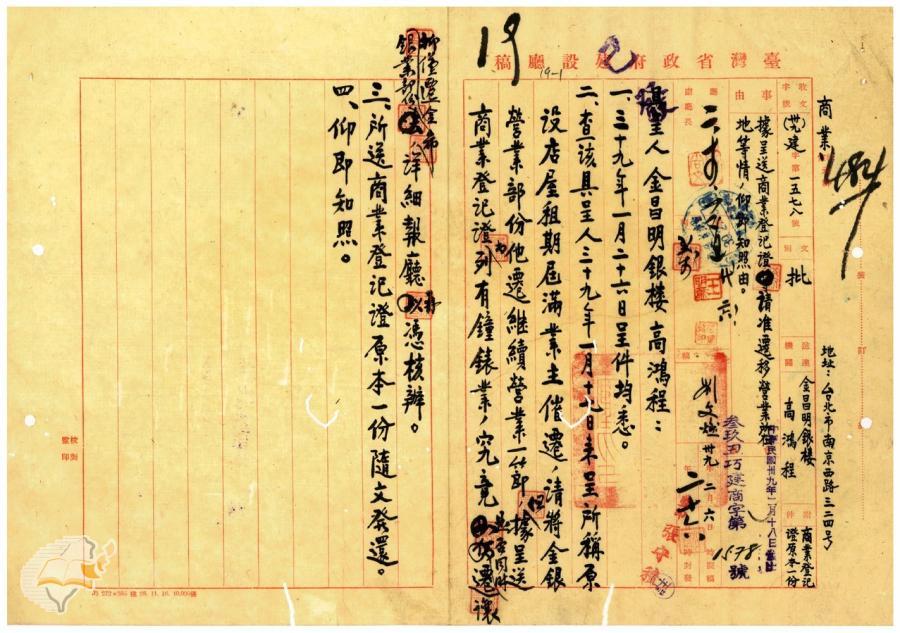 臺灣省政府建設廳稿
19
19-1
商業
484
收文字號
(卅九)建字第一五七八號
文別
批
送達機關
金昌明銀樓
高鴻程
地址:台北市南京西路三二四號
附件
商業登記
證原本一份
事由
據呈送商業登記證請准遷移營業所在
地等情,仰即知照由。
廳長
中華民國卅九年二月十八日
叁玖丑巧建商字第
1578
號
具呈人金昌明銀樓高鴻程:
一、三十九年一月二十六日呈件均悉。
二、查該具呈人三十九年一月十七日來呈所稱原
設店屋租期屆滿業主催遷,請將金銀
營業部份他遷繼續營業一節,但據呈送
商業登記證列有鐘錶業,究竟是否同時遷讓
抑僅遷金銀業部份,希
詳細報廳,以憑核辦。
三、所送商業登記證原本一份隨文發還。
四、仰即知照。
校對
監印